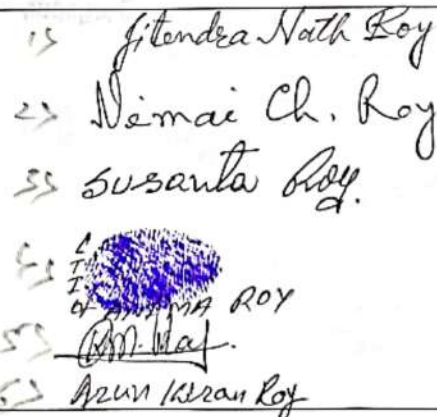 1) Jitendra Nath Roy
2) Nemai Ch. Roy
3) Susanta Roy.
4) L
T
I
of ROY
5)
6) Arun Kiran Roy